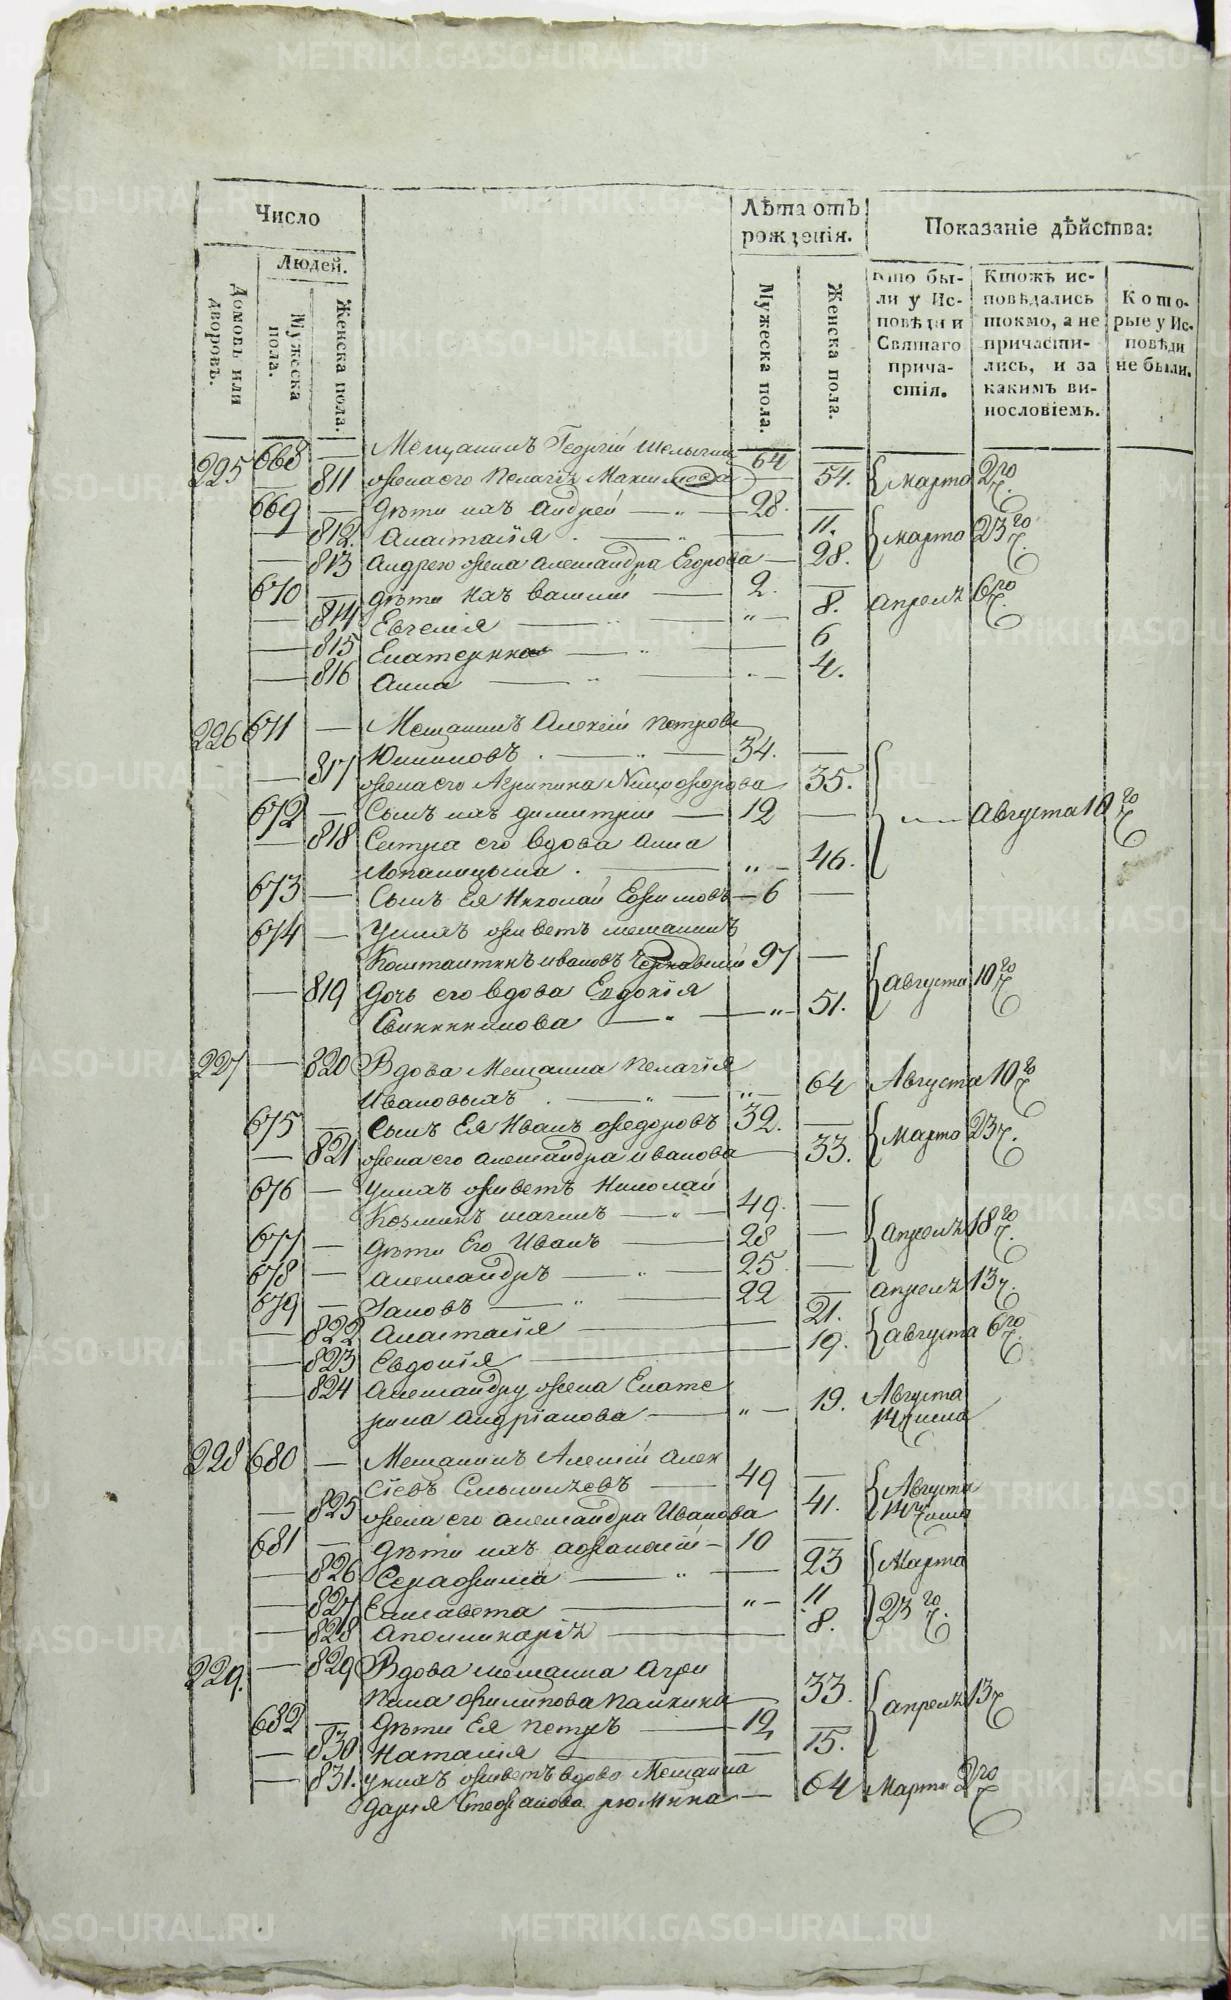 Число
Людей.
Домовъ или дворовъ.
Мужеска пола.
Женска пола.
Лѣта отъ рожденія.
Мужеска пола.
Женска пола.
Показаніе дѣйства:
Кто бы-
ли у Ис-
повѣди и
Святаго
прича-
стія.
Ктожъ ис-
повѣдались
токмо, а не
причасти-
лись, и за
какимъ ви-
нословіемъ.
Кото-
рые у Ис-
повѣди
не были.
225 668 — Мещанинъ Георгій 64 —
— 811 жена его Пелагія Максимова — 54. Марта 2го ч.
669 — Дѣти ихъ Андрей — 28. —
— 812. Анастасія 11. Марта 23го ч.
— 813 Андрею жена Александра Егорова — 28.
670 — Дѣти ихъ Василій — 2. —
— 814 Евгенія — 8. Апреля 6го ч.
— 815 Екатерина — 6
— 816 Анна — 4.
226 671 — Мещанинъ Алексѣй Петровъ
34. —
— 817 жена его Агрипина Никифорова 35.
672 — Сынъ ихъ Димитрій — 12 — Августа 10го ч.
— 818 Сестра его вдова Анна
46.
673 — Сынъ Ея Николай Ефимовъ — 6 —
674 — У нихъ живетъ мещанинъ
Константинъ Ивановъ 97 —
— 819 Дочь его вдова Евдокія Августа 10го ч.
— 51.
227 — 820 Вдова Мещанка Пелагія
Ивановыхъ — 64 Августа 10го ч.
675 — Сынъ Ея Иванъ Федоровъ 32. —
— 821 жена его Александра Иванова 33. Марта 23 ч.
676 — У нихъ живетъ Николай
Козминъ — 49. —
677 — Дѣти Его Иванъ — 28 — Апреля 18го ч.
678 — Александръ — 25. —
679 — Іаковъ — 22 — Апреля 13 ч.
— 822 Анастасія — 21.
— 823 Евдокія — 19. Августа 6го ч.
— 824 Александру жена Екате
рина Андріанова — 19. Августа
14 числа
228 680 — Мещанинъ Алексій Алек
сіевъ 49 —
— 825 жена его Александра Иванова 41. Августа
14го числа
681 — Дѣти ихъ Афанасій — 10 —
— 826 Серафима — 23 Марта
— 827 Елисавета — 11
— 828 Аполлинарія — 8. 23го ч.
229. — 829 Вдова мещанка Агри
пина Филипова 33. Апреля 13 ч.
682 — Дѣти Ея Петръ — 12 —
— 830 Наталія — 15.
— 831. У нихъ живетъ вдова Мещанка
Дарія Стефанова — 64 Марта 2го ч.